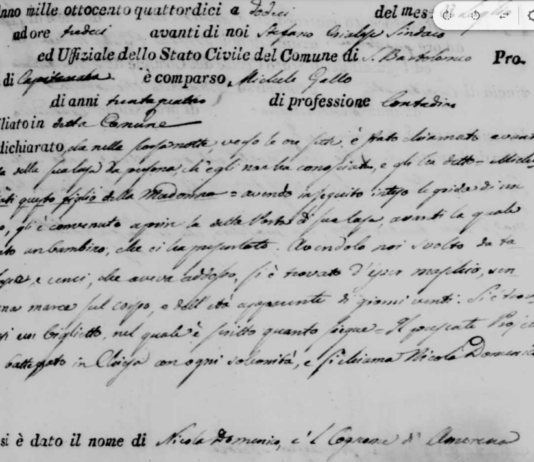 nno mille ottocento quattordici a dodici del mese di Luglio
ad ore tredici avanti di noi Stefano Sindaco
ed Uffiziale dello Stato Civile del Comune di S. Bartolomeo Pro.
di Capitanata è comparso Michele Gallo
di anni trentaquattro di professione Contadino
liato in detta Comune
dichiarato, che nella scorsa notte, verso le ore sette, è stato chiamato avanti
della sua Casa da persona, ch'egli non ha conosciuta, e gli ha detto = Michele
questo figlio della Madonna = avendo inseguito inteso le grida di un
o, gli è convenuto aprir la della Porta di sua Casa, avanti la quale
ato un bambino, che ci ha presentato. Avendolo noi svolto da ta
e cenci, che aveva addosso, si è trovato d'esser maschio, sen
una marca sul corpo, e dell'età apparente di giorni venti: Si è tro
vi un biglietto, nel quale è scritto quanto segue = Il presente Proje
battezzato in Chiesa con ogni solennità, e si chiama Nicola Domenico
si è dato il nome di Nicola Domenico, e 'l Cognome di